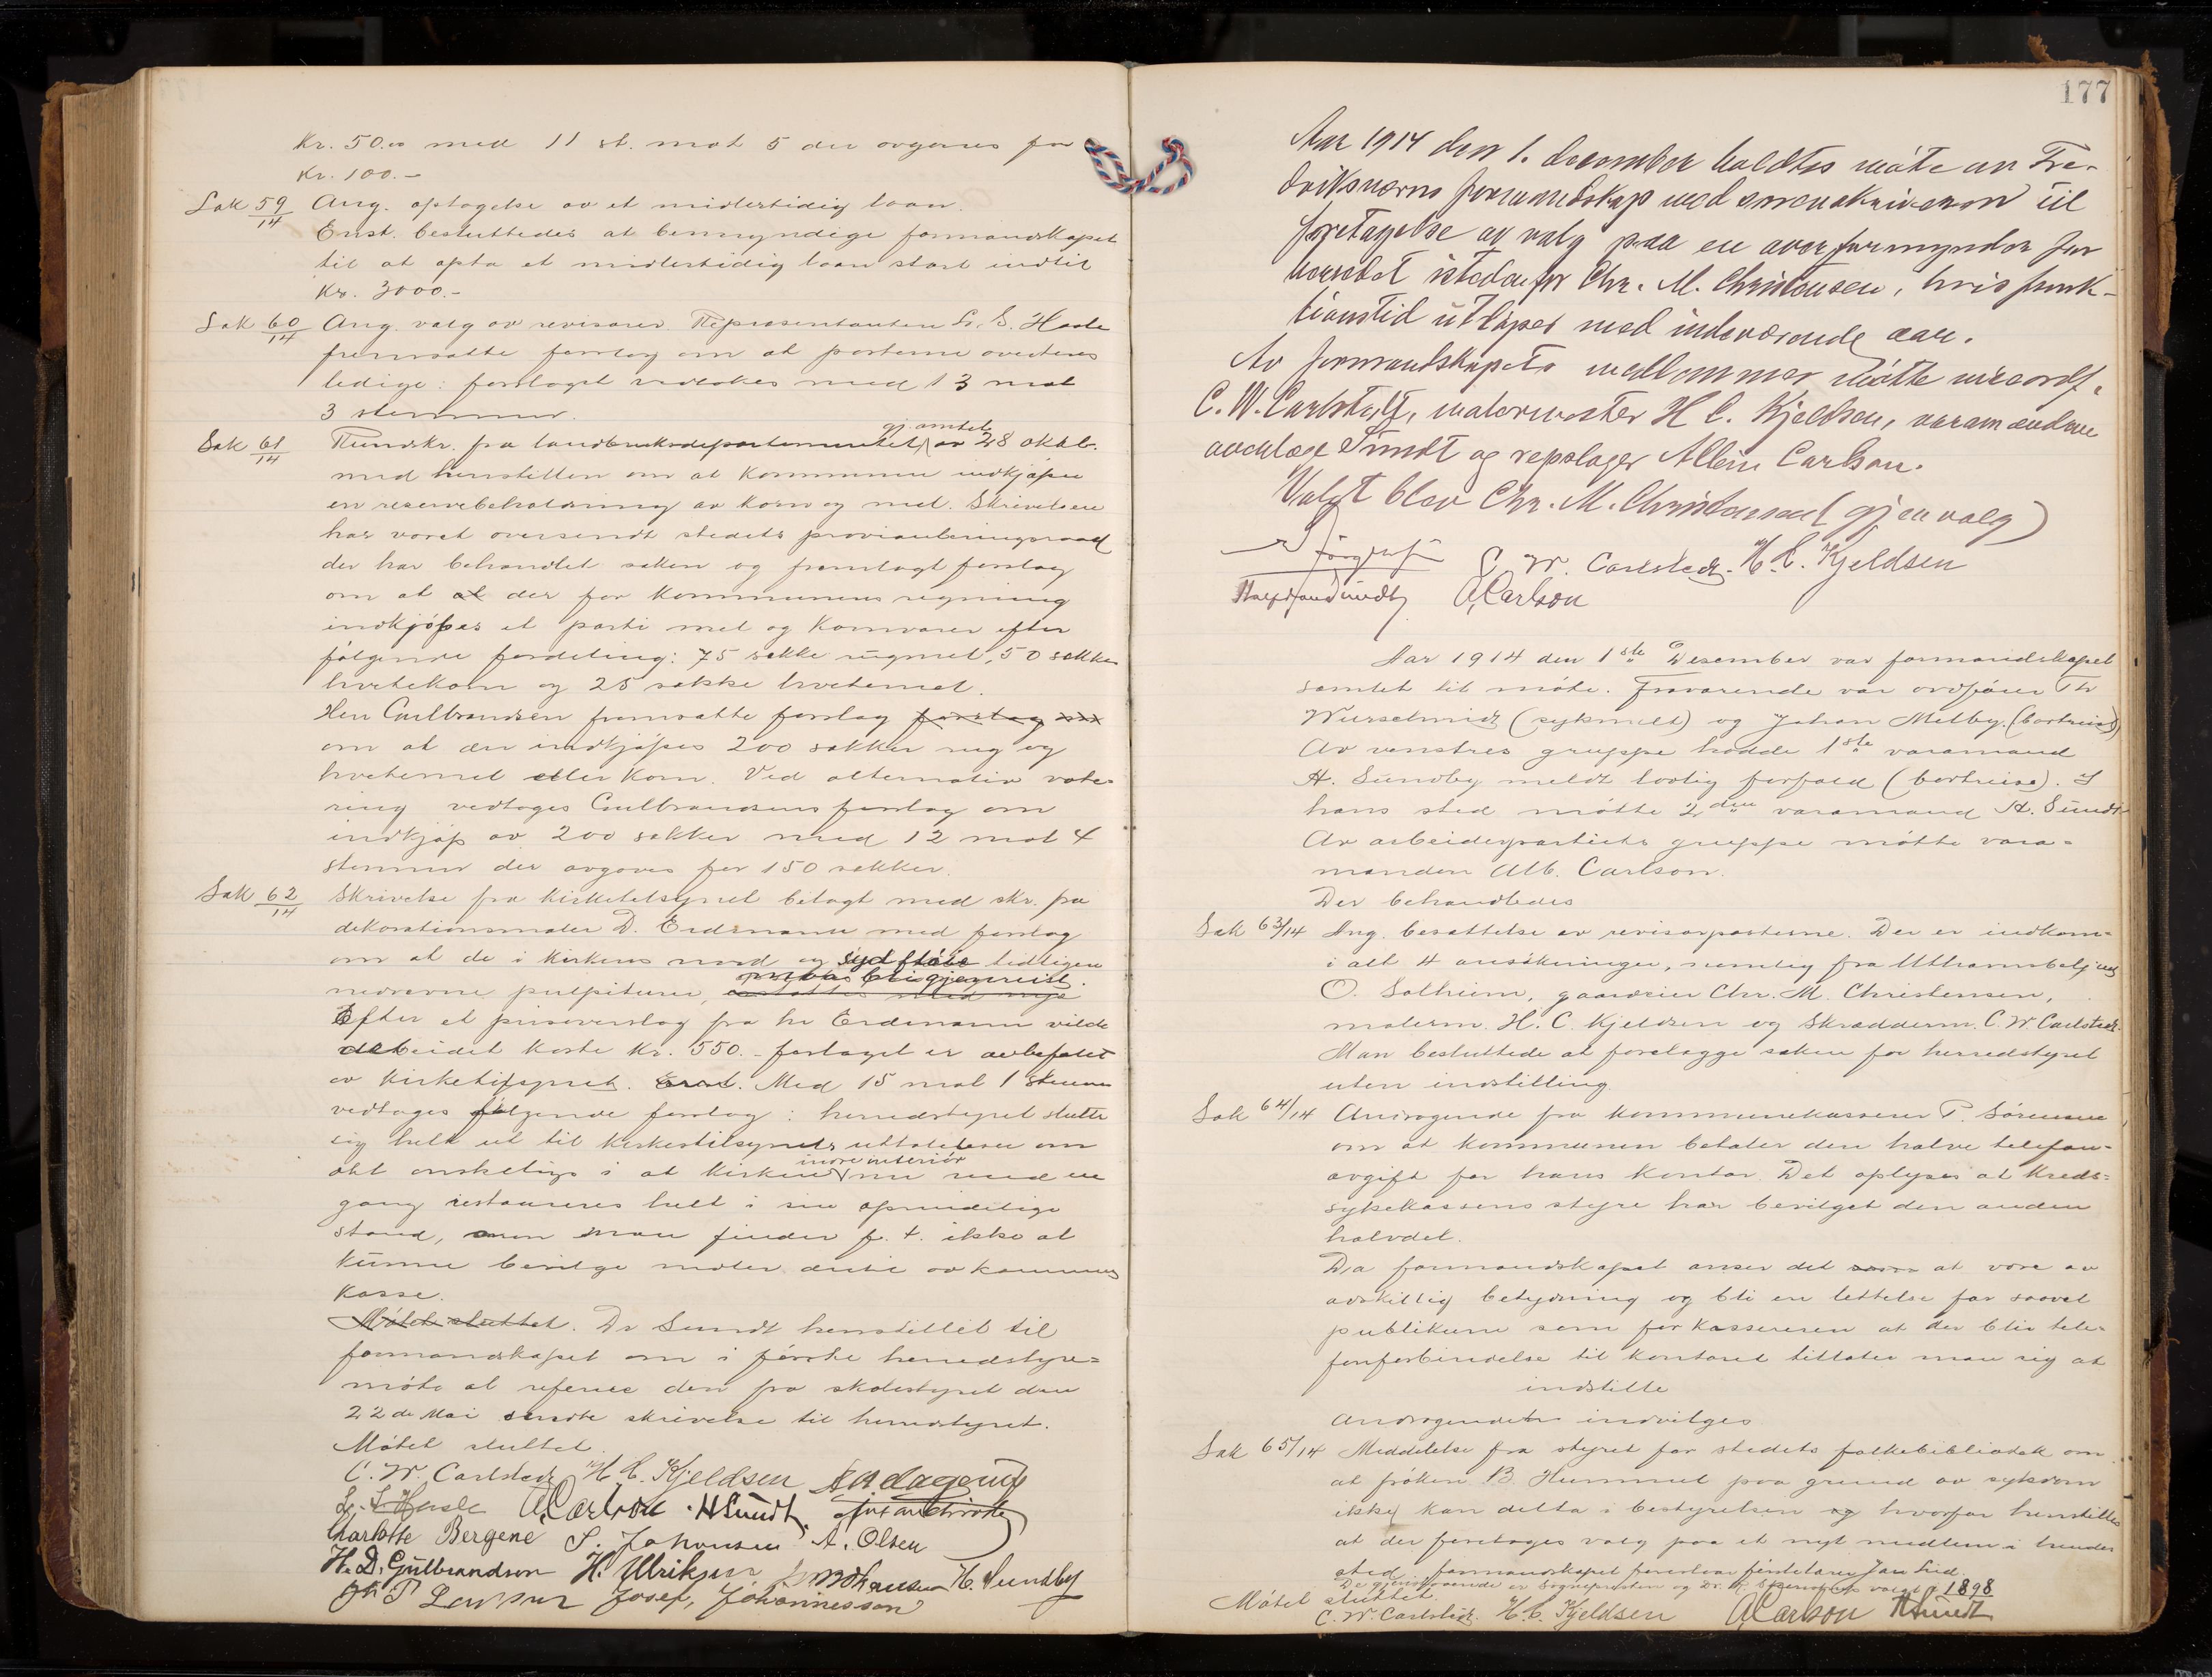 Kr. 50.00 med 11 st. mot 5 der avgaves for
Kr. 100.-
Sak 59/14 Ang. optagelse av et midlertidig laan.
Enst. besluttedes at bemyndige formandskapet
til at opta et midlertidig laan stort indtil
Kr. 3000.-
Sak 60/14 Ang. valg av revisorer. Repræsentanten L. S. Hasle
fremsatte forslag om at posterne averteres
ledige: forslaget vedtokes med 13 mot
3 stemmer.
Sak 61/14 Rundskr. fra landbruksdepartementet gj. amtet av 28 oktb.
med henstillen om at kommunen indkjøper
en reservebeholdning av korn og mel. Skrivelsen
har været oversendt stedets provianteringsraad
der har behandlet saken og fremlagt forslag
om at at der for kommunens regning
indkjøpes et parti mel og kornvarer efter
følgende fordeling: 75 sække rugmel, 50 sækker
hvetekorn og 25 sække hvetemel.
Herr Gulbrandsen fremsatte forslag forslag om
om at der indkjøpes 200 sækker rug og
hvetemel eller korn. Ved alternativ vote-
ring vedtoges Gulbrandsens forslag om
indkjøp av 200 sækker med 12 mot 4
stemmer der avgaves for 150 sækker.
Sak 62/14 Skrivelse fra kirketilsynet bilagt med skr. fra
dekorationsmaler D. Erdmann med forslag
om at de i kirkens nord og syd fløie tidligere
nedrevne pulpiturer, maa bli gjenreist.
erstattes med nye
Efter et prisoverslag fra hr Erdmann vilde
arbeidet koste Kr. 550.- forslaget er anbefalet
av kirketilsynet. Enst. Med 15 mot 1 stemme
vedtages følgende forslag: herredstyret slutter
sig helt ut til kirketilsynets uttalelser om
det ønskelige i at kirkens indre interiør nu med en
gang restaureres helt i sin oprindelige
stand, men man finder p. t. ikke at
kunne bevilge midler dertil av kommunens
kasse.
Møtet sluttet. Dr Sundt henstillet til
formandskapet om i første herredstyre-
møte at referere den fra skolestyret den
22de Mai sendte skrivelse til herredstyret.
Møtet sluttet.
C. W. Carlstedt H. C. Kjeldsen
L. S. Hasle A. Carlson H Sundt
Charlotte Bergene S. Johansen A. Olsen
H. D. Gulbrandson H. Ulriksen H. Sundby
Josef Johannesson
177
Aar 1914 den 1. december holdtes møte av Fre-
driksværns formandskap med sorenskriveren til
foretagelse av valg paa en overformynder for
herredet istedenfor Chr. M. Christensen, hvis funk-
tionstid utløper med indeværende aar.
Av formandskapets medlemmer møtte viceordf.
C. W. Carlstedt, malermester H C. Kjeldsen, varamændene
avdlæge Sundt og repslager Albin Carlson.
Valgt blev Chr. M. Christensen (gjenvalg)
C. W. Carlstedt. H. C. Kjeldsen
A. Carlson
Aar 1914 den 1ste Desember var formandskapet
samlet til møte. Fraværende var ordfører Th
Wurschmidt (sykmeldt) og Johan Melby. (bortreist)
Av venstres gruppe hadde 1ste varamand
H. Sundby meldt lovlig forfald (bortreise). I
hans sted møtte 2den varamand H. Sundt
Av arbeiderpartiets gruppe møtte vara-
manden Alb. Carlson.
Der behandledes
Sak 63/14 Ang. besættelse av revisorposterne. Der er indkom-
i alt 4 ansøkninger, nemlig fra
O. Solheim, gaardeier Chr. M. Christensen,
malerm. H. C. Kjeldsen og Skrædderm. C. W. Carlstedt.
Man besluttede at forelægge saken for herredstyret
uten indstilling.
Sak 64/14 Andragende fra kommunekasserer P. Sørensen
om at kommunen betaler den halve telefon-
avgift for hans kontor. Det oplyses at Kreds-
sykekassens styre har bevilget den anden
halvdel.
Da formandskapet anser det at være av
adskillig betydning og bli en lettelse for saavel
publikum som for kassereren at der blir tele-
fonforbindelse til kontoret tillater man sig at
indstille
Andragendet indvilges
Sak 65/14 Meddelelse fra styret for stedets folkebibliotek om
at frøken B. Hummel paa grund av sykdom
ikke kan delta i bestyrelsen og hvorfor henstilles
at der foretages valg paa et nyt medlem i hendes
sted. formandskapet
De gjenstaaende er Sognepresten og Dr. valgt i 1898
Møtet sluttet.
C. W. Carlstedt. H. C. Kjeldsen A Carlson H Sundt